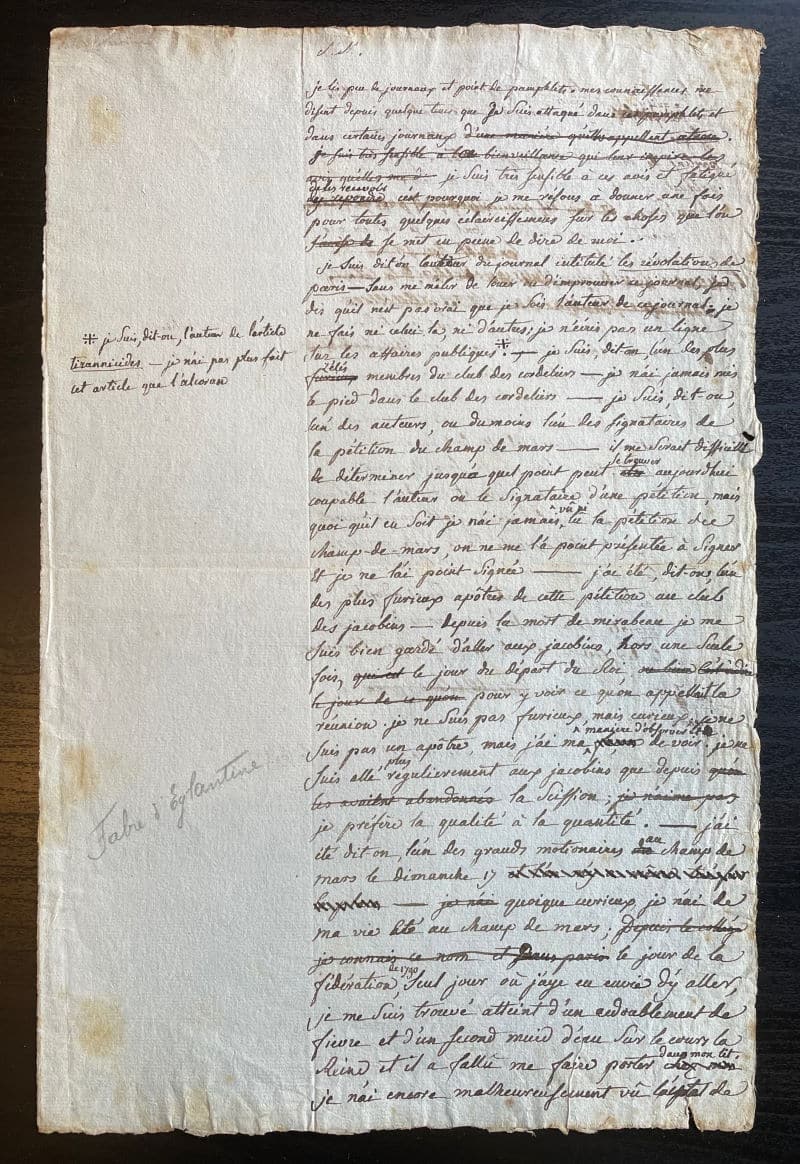 je lis peu de journaux et point de pamphlets. mes connoissances me
disent depuis quelque tems que je suis attaqué dans les pamphlets et
dans certains journaux d'une manière qu'ils appellent atroce.
je suis très sensible à la bienveillance qui leur inspire les
avis qu'elles me d je suis très sensible à ces avis et fatigué
d'en recevoir
de repondre c'est pourquoi je me résous à donner une fois
pour toutes quelques éclaircissemens sur les choses que l'on
se met en peine de dire de moi.
je suis dit-on l'auteur du journal intitulé les révolutions de
paris — sans me mêler de louer ne d'improuver ce journal, je
dis qu'il n'est pas vrai que je sois l'auteur de ce journal. je
ne fais ne celui là ne d'autres; je n'écris pas un ligne
sur les affaires publiques. * — je suis, dit-on l'un des plus
zélés
furieux membres du club des cordeliers — je n'ai jamais mis
le pied dans le club des cordeliers — je suis, dit-ou,
l'un des auteurs, ou du moins l'un des signataires de
la pétition du champ de mars — il me serait difficile
se trouver
de déterminer jusqu'à quel point peut être aujourd'hui
coupable l'auteur ou le signataire d'une pétition, mais
vu ni
quoi qu'il en soit je n'ai jamais, lu la pétition de ce
champ-de-mars, on ne me l'a point présentée à signer
et je ne l'ai point signée — j'ai été, dit-on, l'un
des plus furieux apôtres de cette pétition au club
des jacobins — depuis la mort de mirabeau je me
suis bien gardé d'aller aux jacobins, hors une seule
fois, qui est le jour du départ du Roi
le jour de ce qu'on pour y voir ce qu'on appellait la
réunion. je ne suis pas furieux, mais curieux; je ne
manière d'observer et
suis pas un apôtre, mais j'ai ma façon de voir. je ne
plus
suis allé régulièrement aux jacobins que depuis qu'on
les avaient abandonnés la scission. je n'aime pas
je préfère la qualité à la quantité. — j'ai
au
été dit-on, l'un des grands motionaires du champ de
mars le dimanche 17
— je n'ai quoique curieux, je n'ai de
ma vie été au champ de mars; Depuis le collège
je connais ce nom et dans paris le jour de la
de 1790
fédération, seul jour où j'aye eu envie d'y aller,
je me suis trouvé atteint d'un redoublement de
fievre et d'un second muid d'eau sur le cours la
dans mon lit.
Reine et il a fallu me faire porter chez moi
je n'ai encore malheureusement vû l'hôpital de
* je suis, dit-on, l'auteur de l'article
tirannicides — je n'ai pas plus fait
cet article que l'alcoran
Fabre d'Églantine